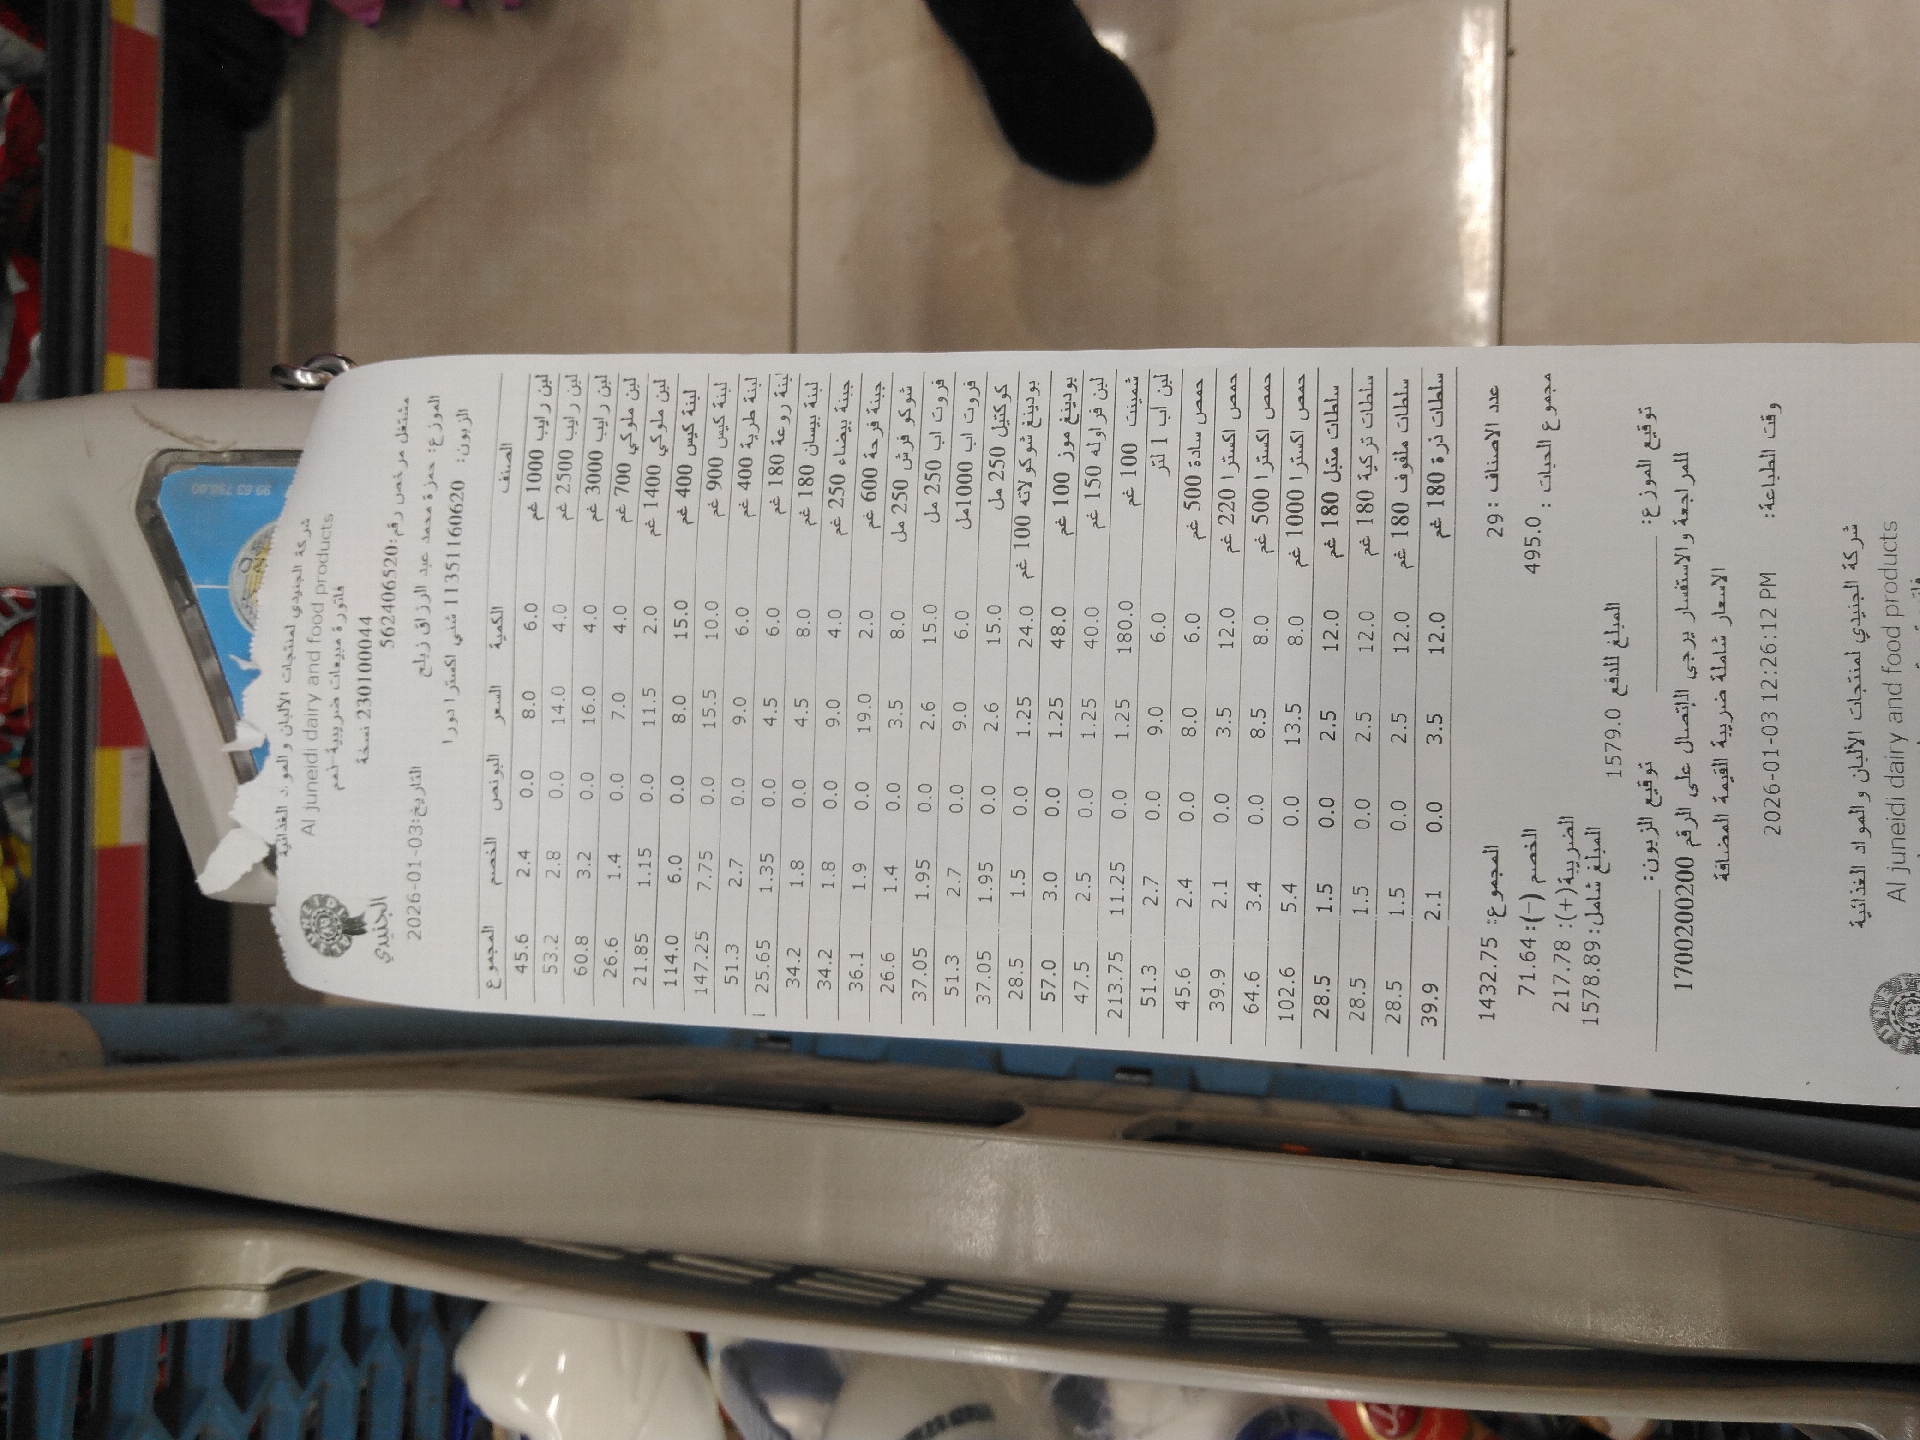 شركة الجنيدي لمنتجات الألبان والمواد الغذائية
Al juneidi dairy and food products
فاتورة مبيعات ضريبية-نعم
230100044 نسخة
الجنيدي
مشتغل مرخص رقم:562406520
الموزع: حمزة محمد عبد الرزاق زبلح التاريخ:2026-01-03
الزبون: 113511160620 شني اكسترا دورا
الصنف الكمية السعر البونص الخصم المجموع
لبن رايب 1000 غم 6.0 8.0 0.0 2.4 45.6
لبن رايب 2500 غم 4.0 14.0 0.0 2.8 53.2
لبن رايب 3000 غم 4.0 16.0 0.0 3.2 60.8
لبن ملوكي 700 غم 4.0 7.0 0.0 1.4 26.6
لبن ملوكي 1400 غم 2.0 11.5 0.0 1.15 21.85
لبنة كيس 400 غم 15.0 8.0 0.0 6.0 114.0
لبنة كيس 900 غم 10.0 15.5 0.0 7.75 147.25
لبنة طرية 400 غم 6.0 9.0 0.0 2.7 51.3
لبنة روعة 180 غم 6.0 4.5 0.0 1.35 25.65
لبنة بيسان 180 غم 8.0 4.5 0.0 1.8 34.2
جبنة بيضاء 250 غم 4.0 9.0 0.0 1.8 34.2
جبنة فرحة 600 غم 2.0 19.0 0.0 1.9 36.1
شوكو فرش 250 مل 8.0 3.5 0.0 1.4 26.6
فروت اب 250 مل 15.0 2.6 0.0 1.95 37.05
فروت اب 1000مل 6.0 9.0 0.0 2.7 51.3
كوكتيل 250 مل 15.0 2.6 0.0 1.95 37.05
بودينغ شوكولاته 100 غم 24.0 1.25 0.0 1.5 28.5
بودينغ موز 100 غم 48.0 1.25 0.0 3.0 57.0
لبن فراوله 150 غم 40.0 1.25 0.0 2.5 47.5
شمينت 100 غم 180.0 1.25 0.0 11.25 213.75
لبن اب 1 لتر 6.0 9.0 0.0 2.7 51.3
حمص سادة 500 غم 6.0 8.0 0.0 2.4 45.6
حمص اكسترا 220 غم 12.0 3.5 0.0 2.1 39.9
حمص اكسترا 500 غم 8.0 8.5 0.0 3.4 64.6
حمص اكسترا 1000 غم 8.0 13.5 0.0 5.4 102.6
سلطات متبل 180 غم 12.0 2.5 0.0 1.5 28.5
سلطات تركية 180 غم 12.0 2.5 0.0 1.5 28.5
سلطات ملفوف 180 غم 12.0 2.5 0.0 1.5 28.5
سلطات ذرة 180 غم 12.0 3.5 0.0 2.1 39.9
عدد الاصناف :29 المجموع: 1432.75
مجموع الحبات : 495.0 الخصم (-): 71.64
الضريبة(+): 217.78
المبلغ للدفع 1579.0 المبلغ شامل: 1578.89
توقيع الموزع: توقيع الزبون:
للمراجعة والاستفسار يرجى الاتصال على الرقم 1700200200
الاسعار شاملة ضريبة القيمة المضافة
وقت الطباعة: 2026-01-03 12:26:12 PM
شركة الجنيدي لمنتجات الألبان والمواد الغذائية
Al juneidi dairy and food products